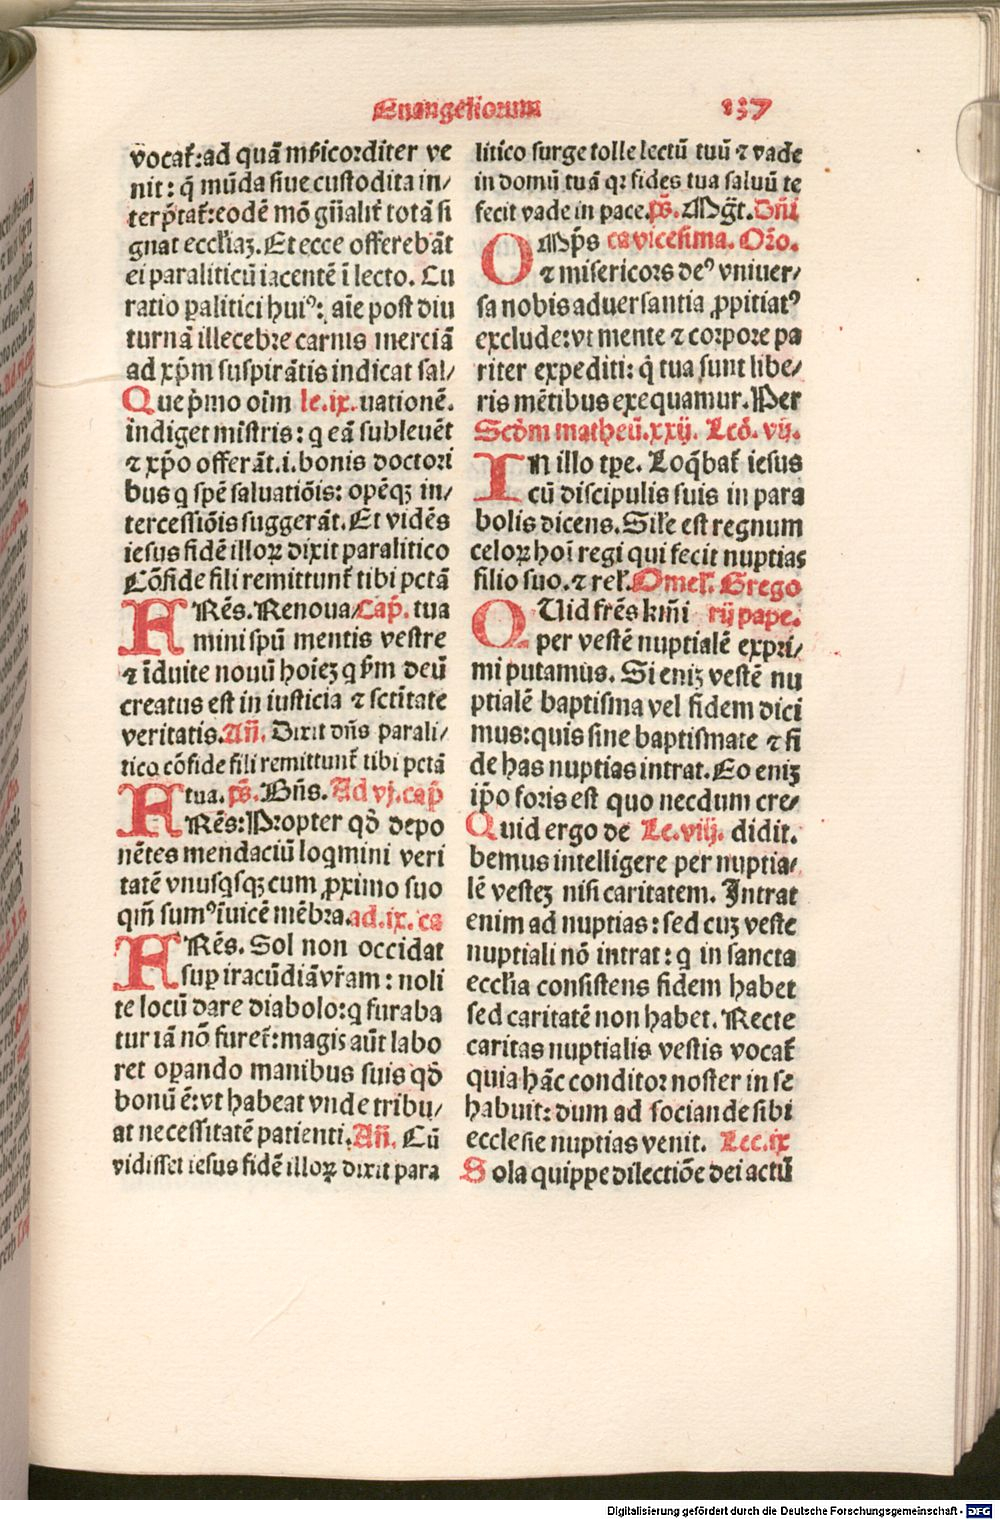 Euangeliorum 137
vocat᷑: ad quā mi̅icorditer ve
nit: q̄ mūda siue custodita in/
terp̄tat᷑: eodē mō gn̄alit᷑ totā si
gnat ecclīaꝫ. Et ecce offerebāt
ei paraliticū iacentē ī lecto. Cu
ratio ꝑalitici huiꝰ: aīe post diu
turnā illecebre carnis merciā
ad xp̄m suspirātis indicat sal/
Que p̄mo oīm le.ix. uationē.
indiget mīstris: q eā subleuēt
⁊ xp̄o offerāt. i. bonis doctori
bus q spē saluatiōis: opēqꝫ in/
tercessiōis suggerāt. Et vidēs
iesus fidē illoꝝ dixit paralitico
Cōfide fili remittunt᷑ tibi pctā
FRēs. Renoua/ Cap̄. tua
mini spū mentis vestre
⁊ īduite nouū hoieꝫ q ẜm deū
creatus est in iusticia ⁊ sctītate
veritatis. An̄. Dixit dn̄s parali/
tico cōfide fili remittunt᷑ tibi pctā
tua. ps̄. Bn̄s. Ad vj. cap̄
FRēs: Propter qđ depo
nētes mendaciū loqmini veri
tatē vnusqsqꝫ cum ꝓximo suo
qm̄ sumꝰ īuicē mēbra. ad. ix. ca
FRēs. Sol non occidat
suꝑ iracūdiā vr̄am: noli
te locū dare diabolo: q furaba
tur iā nō furet᷑: magis aūt labo
ret oꝑando manibus suis qđ
bonū ē: vt habeat vnde tribu/
at necessitatē patienti. An̄. Cū
vidisset iesus fidē illoꝝ dixit para
litico surge tolle lectū tuū ⁊ vade
in domū tuā qꝛ fides tua saluū te
fecit vade in pace. ps̄. Mg̅t. Dn̄i
OMp̄s ca vicesima. Oro̅.
⁊ misericors deꝰ vniuer/
sa nobis aduersantia ꝓpitiatꝰ
exclude: vt mente ⁊ corpore pa
riter expediti: q̄ tua sunt libe/
ris mētibus exequamur. Per
Scđm matheū. xxij. Lcō. vij.
IN illo tꝑe. Loq̄bat᷑ iesus
cū discipulis suis in para
bolis dicens. Sile̅ est regnum
celoꝝ hoī regi qui fecit nuptias
filio suo. ⁊ rel̅. Omel̅. Grego
QUid frēs km̄i rij pape.
per vestē nuptialē expri/
mi putamus. Si eniꝫ vestē nu
ptialē baptisma vel fidem dici
mus: quis sine baptismate ⁊ fi
de has nuptias intrat. Eo eniꝫ
ip̄o foris est quo necdum cre/
Quid ergo de Le. viij. didit.
bemus intelligere per nuptia/
lē vesteꝫ nisi caritatem. Intrat
enim ad nuptias: sed cuꝫ veste
nuptiali nō intrat: q in sancta
ecclīa consistens fidem habet
sed caritatē non habet. Recte
caritas nuptialis vestis vocat᷑
quia hāc conditor noster in se
habuit: dum ad sociande sibi
ecclesie nuptias venit. Lec. ix
Sola quippe dilectiōe dei actū
Digitalisierung gefördert durch die Deutsche Forschungsgemeinschaft - DFG